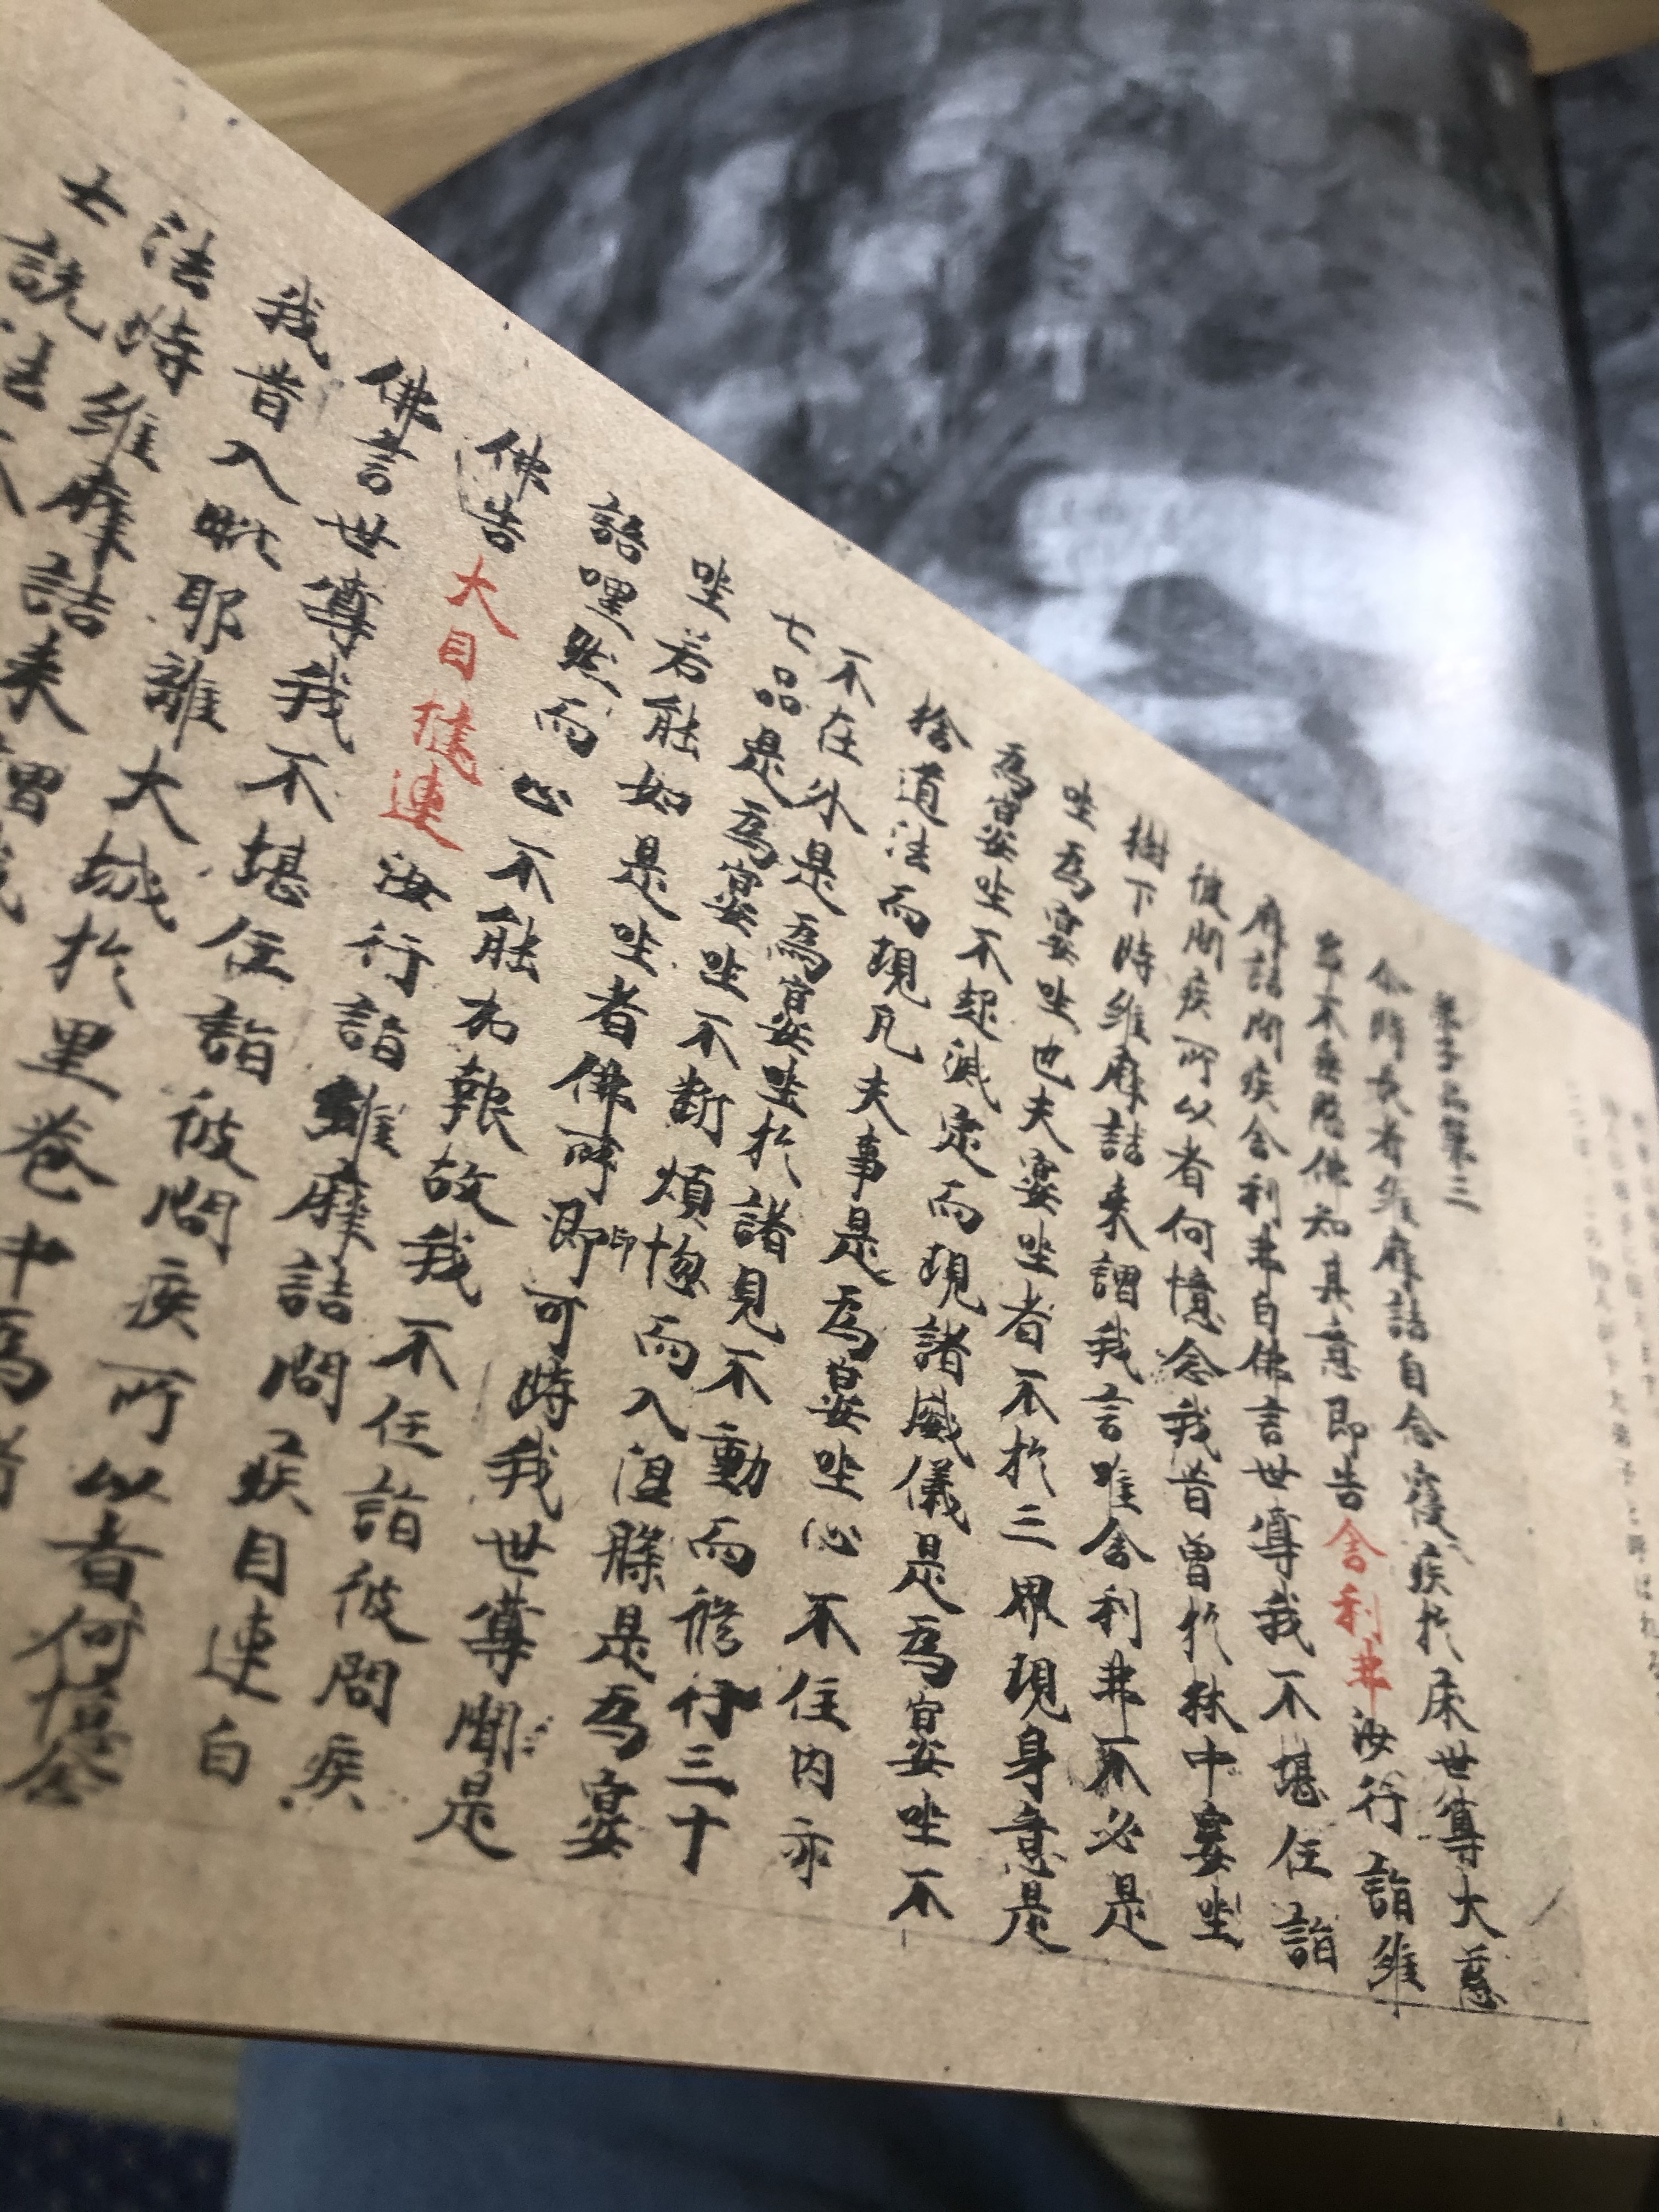 弟子品第三
尒時長者維摩詰自念寢疾於床世尊大慈
寧不垂愍佛知其意即告舍利弗汝行詣維
摩詰問疾舍利弗白佛言世尊我不堪任詣
彼問疾所以者何憶念我昔曾於林中宴坐
樹下時維摩詰来謂我言唯舍利弗不必是
坐為宴坐也夫宴坐者不於三界現身意是
為宴坐不起滅定而現諸威儀是為宴坐不
捨道法而現凡夫事是為宴坐心不住內亦
不在外是為宴坐於諸見不動而修行三十
七品是為宴坐不断煩惱而入涅槃是為宴
坐若能如是坐者佛所印即可時我世尊聞是
語嘿然而止不能加報故我不任詣彼問疾
佛告大目揵連汝行詣維摩詰問疾目連白
佛言世尊我不堪任詣彼問疾所以者何憶念
我昔入毗耶離大城於里巷中為諸
法時維摩詰来謂我
士說法不